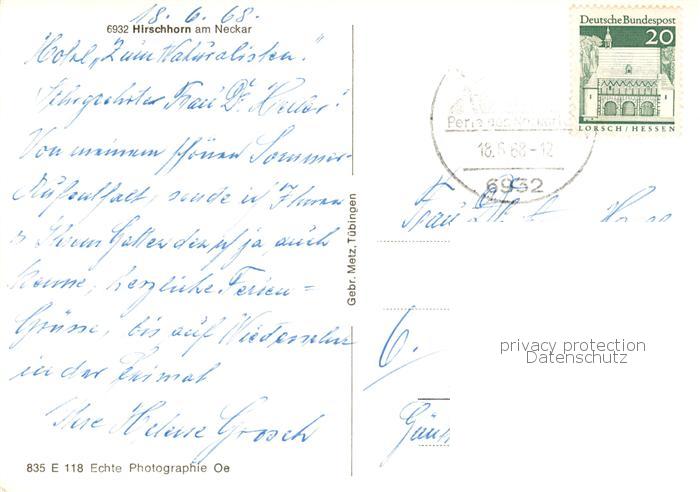 18. 6. 68.
6932 Hirschhorn am Neckar
Hotel „Zum Naturalisten."
Sehrgeehrte Frau Dr. Heller!
Von meinem schönen Sommer-
Aufenthalt, sende ich Ihnen
u Ihrem Gatten den ich ja auch
kenne, herzliche Ferien=
Grüsse, bis auf Wiedersehn
in der Heimat
Ihre Helene Grosch
835 E 118 Echte Photographie Oe
Gebr. Metz, Tübingen
Deutsche Bundespost
20
LORSCH/HESSEN
Perle des Neckartals
18.6.68-12
6932
Frau
6.
privacy protection
Datenschutz